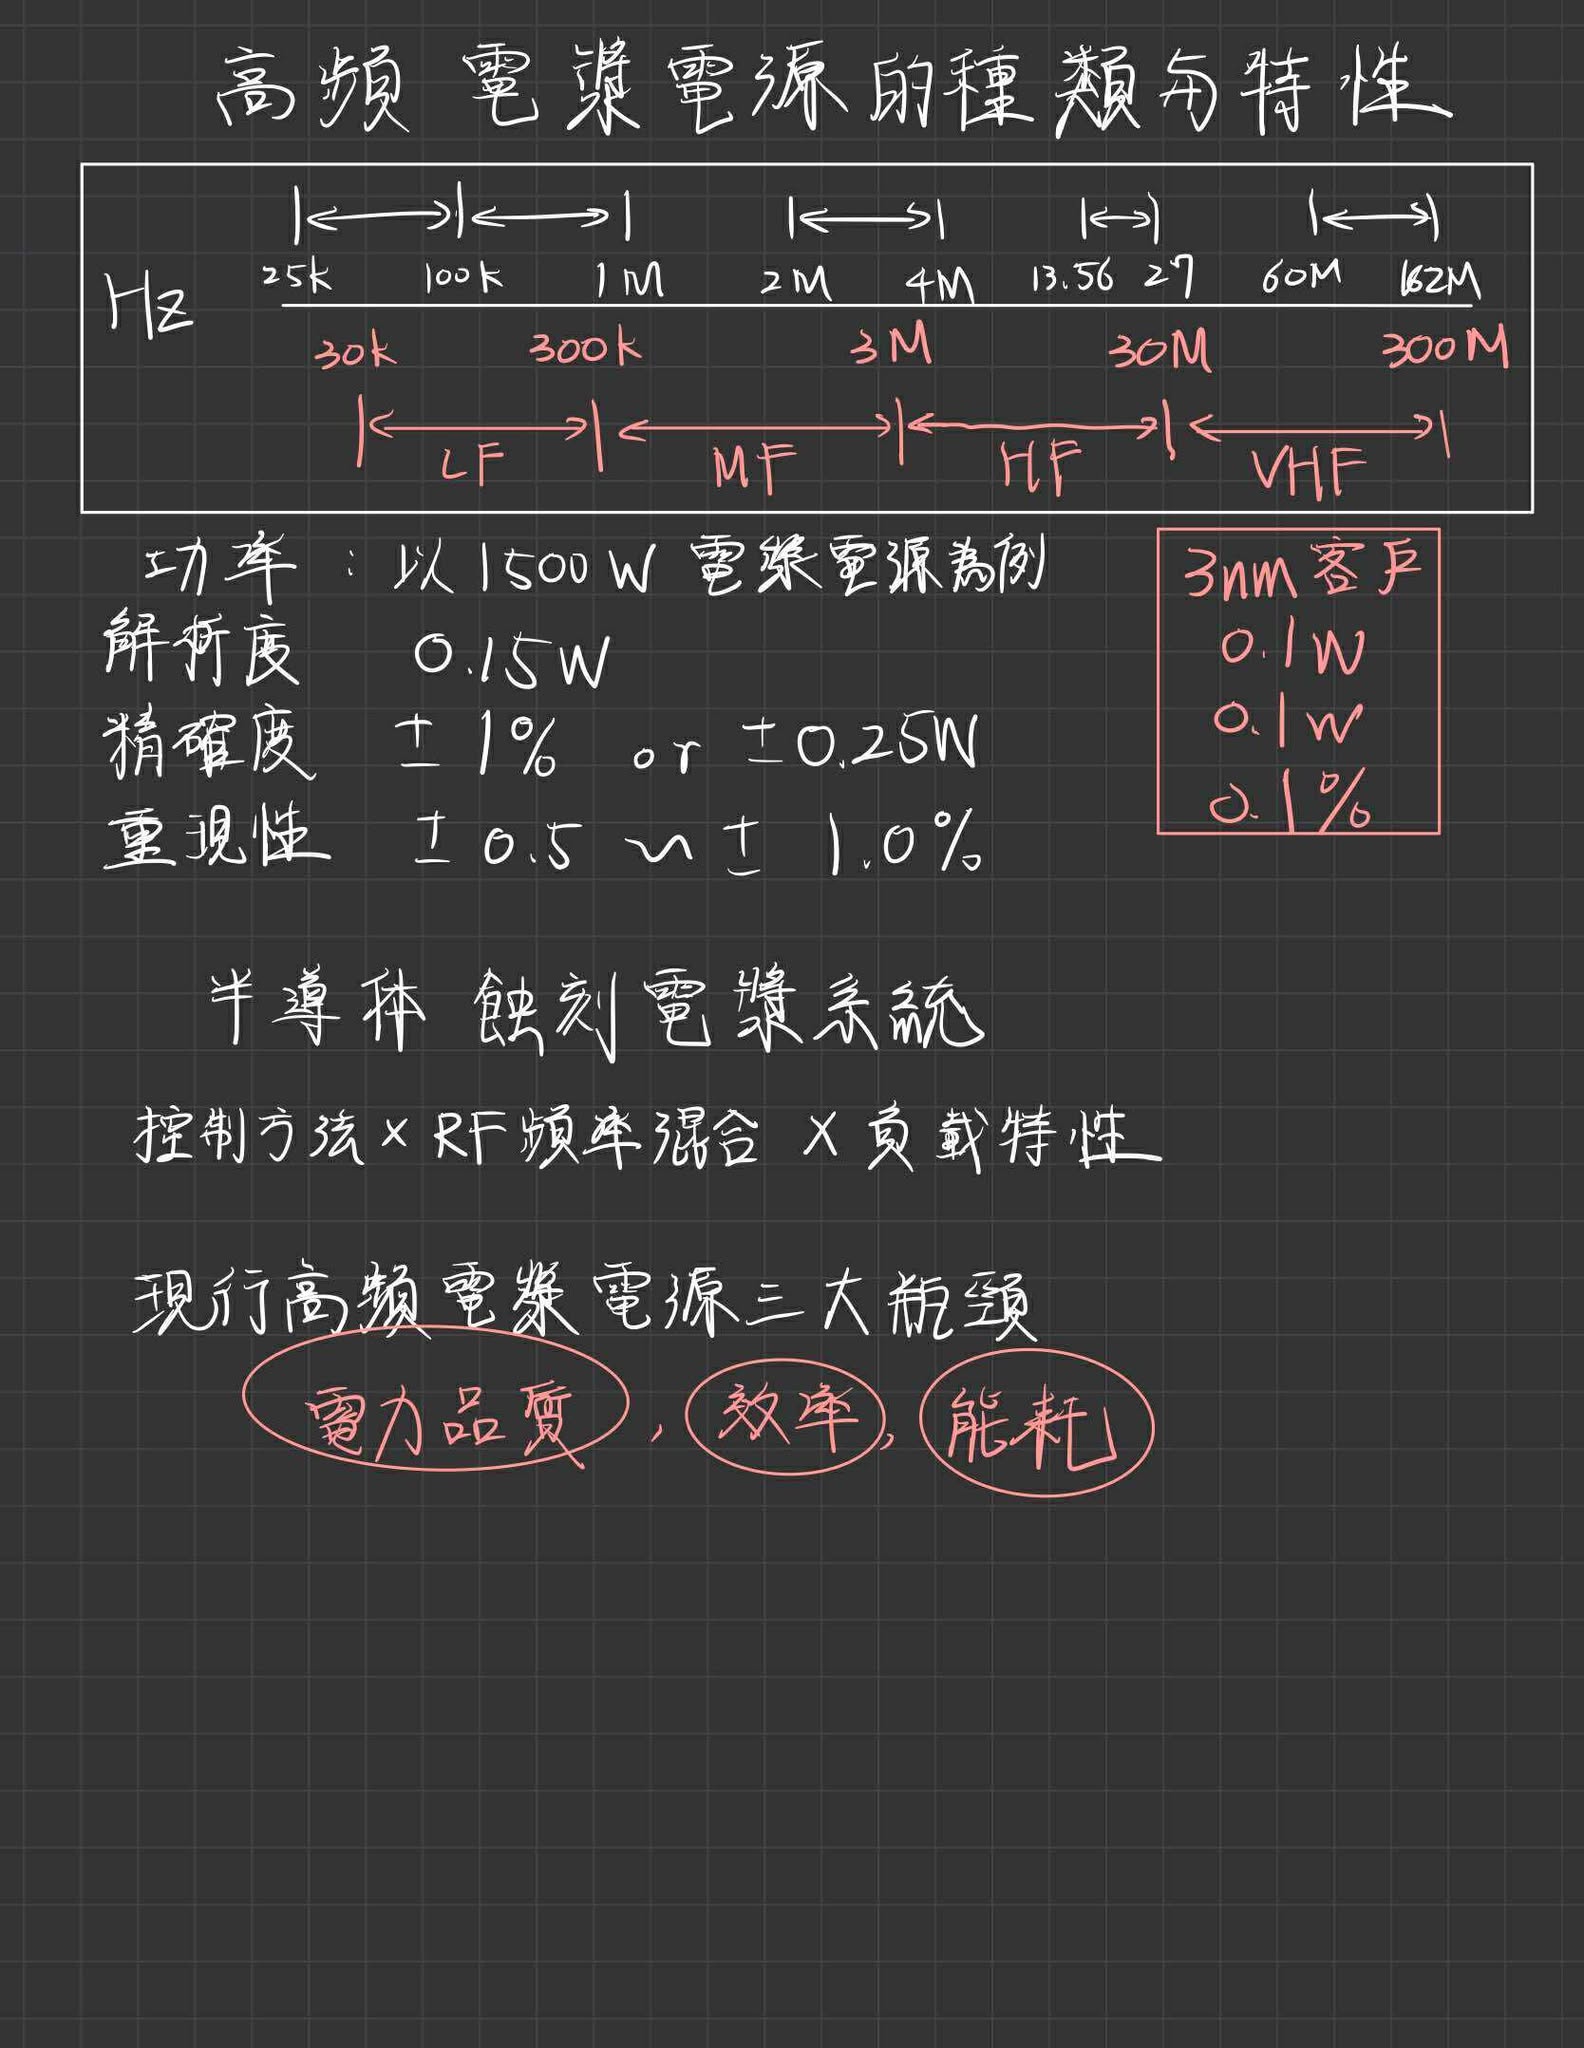 高頻電漿電源的種類与特性
25k 100k 1M 2M 4M 13.56 27 60M 162M
Hz
30k 300k 3M 30M 300M
LF MF HF VHF
功率：以1500W電漿電源為例
解析度 0.15W
精確度 ±1% or ±0.25W
重現性 ±0.5 ~ ±1.0%
3nm客戶
0.1W
0.1W
0.1%
半導体 蝕刻電漿系統
控制方法×RF頻率混合×負載特性
現行高頻電漿電源三大瓶頸
電力品質，效率，能耗